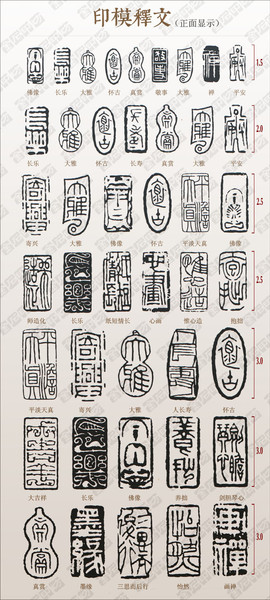 印模释文(正面显示)
1.5
佛像 长乐 大雅 怀古 真赏 敬事 大雅 禅 平安
2.0
长乐 大雅 怀古 长寿 真赏 大雅 平安
2.5
寄兴 大雅 佛像 怀古 平淡天真 佛像
2.5
师造化 长乐 纸短情长 心画 惟心造 抱拙
3.0
平淡天真 寄兴 大雅 人长寿 怀古
3.0
大吉祥 长乐 佛像 养拙 剑胆琴心
3.0
真赏 墨缘 三思而后行 怡然 画禅